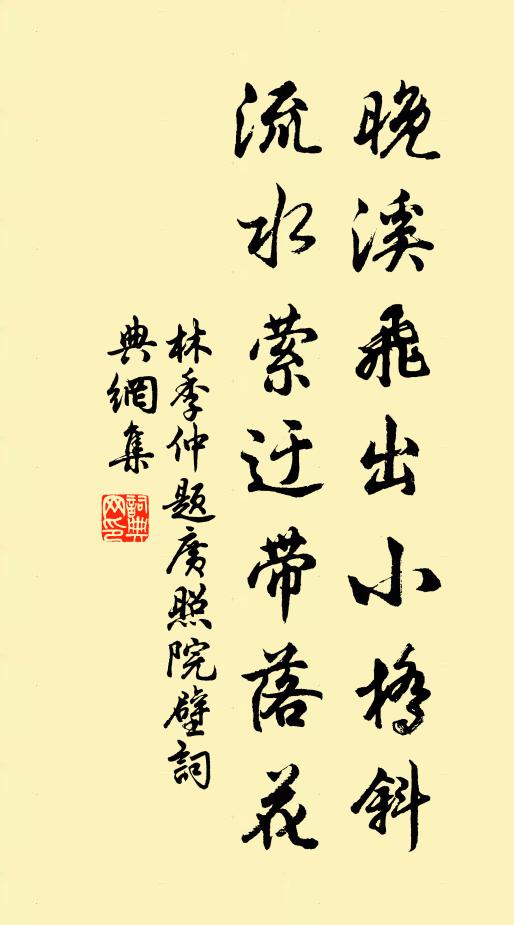 晚溪飛出小橋斜
流水縈迂帶落花
林季仲題廣照院壁詞
典網集
詞典網印